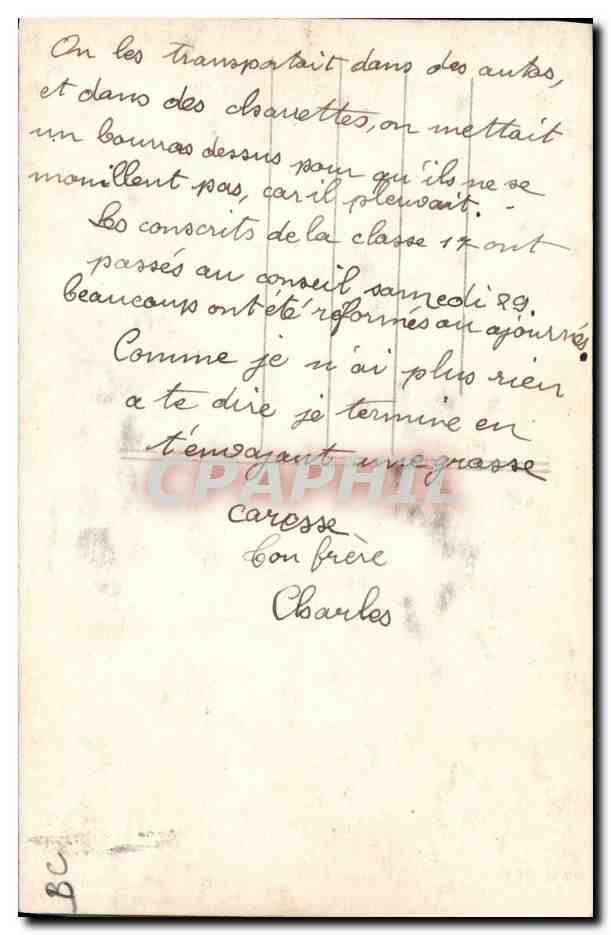 On les transportait dans des autos,
et dans des charrettes, on mettait
un bourras dessus pour qu'ils ne se
mouillent pas, car il pleuvait. -
Les conscrits de la classe 17 ont
passés au conseil samedi 29.
beaucoup ont été réformés ou ajournés.
Comme je n'ai plus rien
a te dire je termine en
t'envoyant une grosse
caresse
Ton frère
Charles
CPAPHIL
BC